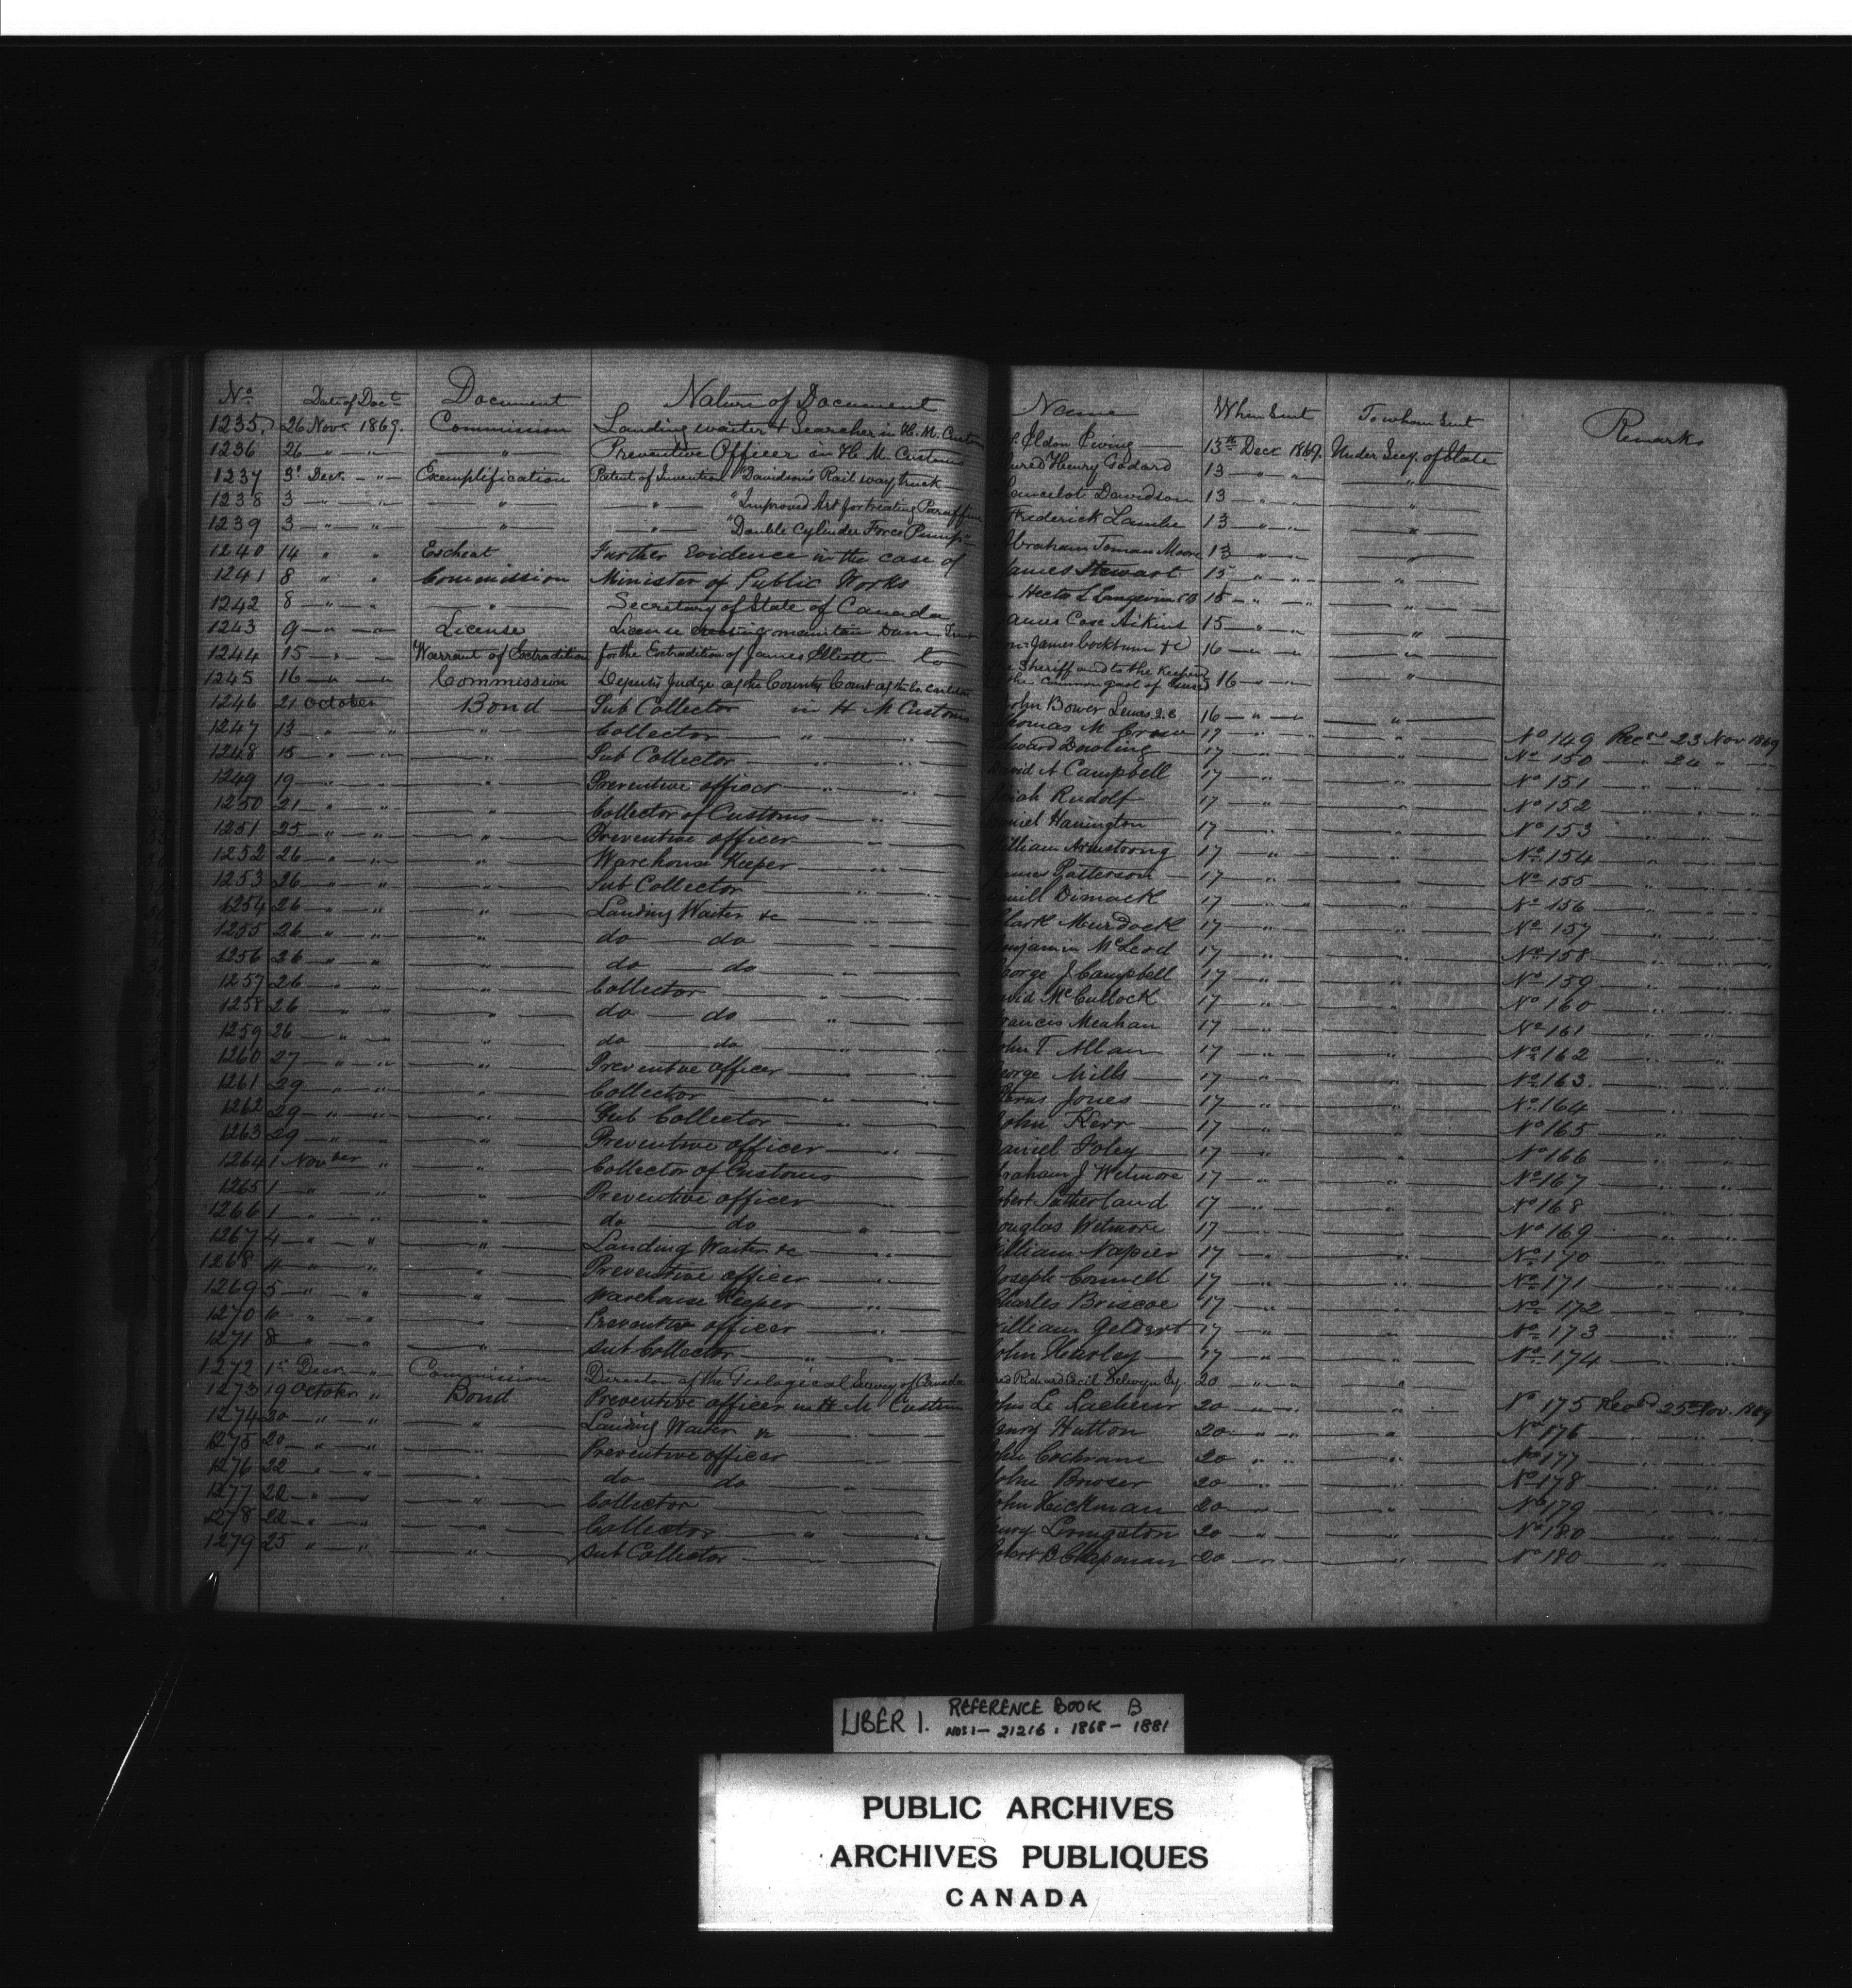 No. Date of Doct. Document Nature of Document Name When Sent To whom Sent Remarks
1235 26 Nov. 1869. Commission Landing waiter & Searcher in H. M. Customs Eldon Ewing 13th Dec 1869. Under Secy. of State
1236 26 " " " Preventive Officer in H. M. Customs Henry Godard 13 " " "
1237 3d Dec. " Exemplification Patent of Invention "Davidson's Railway truck Lancelot Davidson 13 " " "
1238 3 " " " " "Improved Art for treating Paraffine Frederick Lambe 13 " " "
1239 3 " " " " "Double Cylinder Force Pump" Abraham Toman Moore 13 " " "
1240 14 " " Escheat Further Evidence in the case of James Stewart 15 " " "
1241 8 " " Commission Minister of Public Works Hector L Langevin CB 15 " " "
1242 8 " " " Secretary of State of Canada James Cox Aikins 15 " " "
1243 9 " " License License maintain Dam James Cockburn &c 16 " " "
1244 15 " " Warrant of Extradition for the Extradition of James Elliott to Sheriff and to the Keeper of the common gaol of 16 " " "
1245 16 " " Commission Deputy Judge of the County Court of the Co. Carleton John Bower Lewis Q.C 16 " " "
1246 21 October Bond Sub Collector in H M Customs Thomas M Crow 17 " " " No 149 Recd 23 Nov 1869
1247 13 " " " Collector " " Edward Dowling 17 " " No 150 " 24 "
1248 15 " " " Sub Collector " " David A Campbell 17 " " No 151 " "
1249 19 " " " Preventive officer " " Josiah Rudolf 17 " " No 152 " "
1250 21 " " " Collector of Customs " Daniel Hanington 17 " " No 153 " "
1251 25 " " " Preventive officer " " William Armstrong 17 " " No 154 " "
1252 26 " " " Warehouse Keeper " " James Patterson 17 " " No 155 " "
1253 26 " " " Sub Collector " " Dimock 17 " " No 156 " "
1254 26 " " " Landing Waiter &c " " Clark Murdock 17 " " No 157 " "
1255 26 " " " do do " " Benjamin McLeod 17 " " No 158 " "
1256 26 " " " do do " " George J Campbell 17 " " No 159 " "
1257 26 " " " Collector " " David McCullock 17 " " No 160 " "
1258 26 " " " do do " " Francis Meahan 17 " " No 161 " "
1259 26 " " " do do " " John T Allan 17 " " No 162 " "
1260 27 " " " Preventive officer " " George Mills 17 " " No 163 " "
1261 29 " " " Collector " " Jones 17 " " No 164 " "
1262 29 " " " Sub Collector " " John Kerr 17 " " No 165 " "
1263 29 " " " Preventive officer " " Daniel Foley 17 " " No 166 " "
1264 1 November " " Collector of Customs Abraham J Wetmore 17 " " No 167 " "
1265 1 " " " Preventive officer Robert Sutherland 17 " " No 168 " "
1266 1 " " " do do " Douglas Wetmore 17 " " No 169 " "
1267 4 " " " Landing Waiter &c " William Napier 17 " " No 170 " "
1268 4 " " " Preventive officer " Joseph Connell 17 " " No 171 " "
1269 5 " " " Warehouse Keeper " Charles Briscoe 17 " " No 172 " "
1270 6 " " " Preventive officer " William Geldert 17 " " No 173 " "
1271 8 " " " Sub Collector " " John Harley 17 " " No 174 " "
1272 1st Decr " Commission Director of the Geological Survey of Canada Richard Cecil Selwyn 20 " " "
1273 19 October " Bond Preventive officer in H M Customs John Le Lacheur 20 " " " No 175 Recd 25 Nov. 1869
1274 20 " " " Landing Waiter &c " Henry Hutton 20 " " " No 176 " "
1275 20 " " " Preventive officer John Cochrane 20 " " " No 177 " "
1276 22 " " " do do " John Bowser 20 " " No 178 " "
1277 22 " " " Collector John Hickman 20 " " No 179 " "
1278 22 " " " Collector " " Henry Livingston 20 " " No 180 " "
1279 25 " " " Sub Collector " " Robert B Chapman 20 " " No 180 "
LIBER 1. REFERENCE BOOK B
NOS 1 - 21216 : 1868 - 1881
PUBLIC ARCHIVES
ARCHIVES PUBLIQUES
CANADA